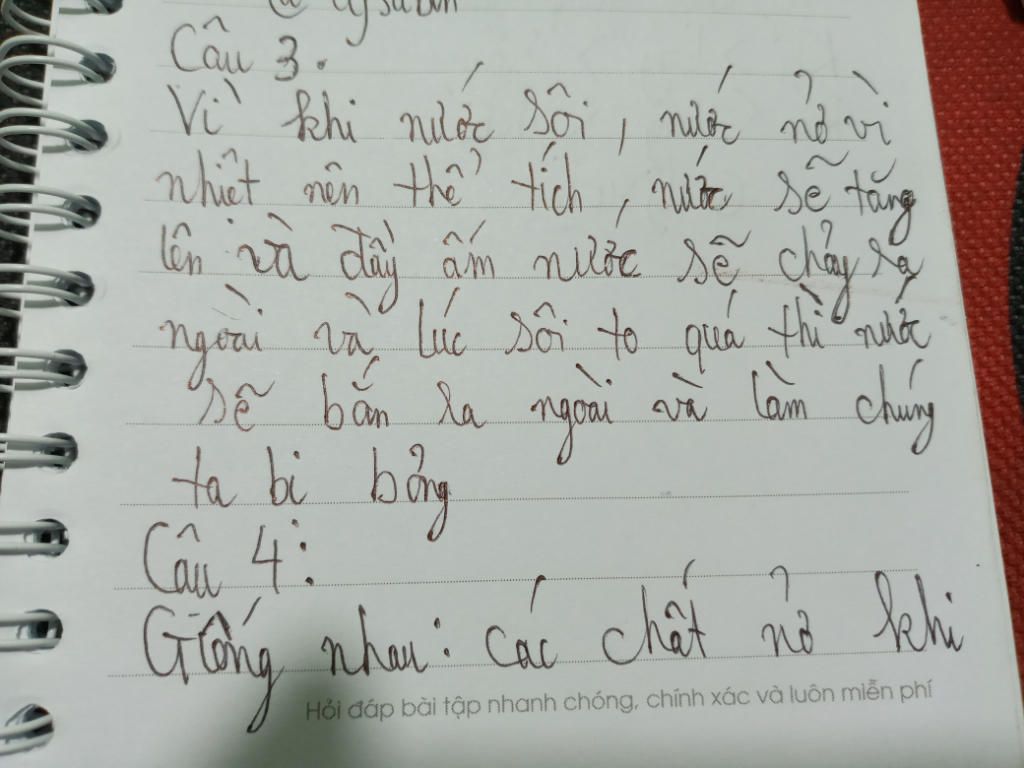 Câu 3.
Vì khi nước sôi, nước nở vì
nhiệt nên thể tích, nước sẽ tăng
lên và đầy ấm nước sẽ chảy ra
ngoài và lúc sôi to quá thì nước
sẽ bắn ra ngoài và làm chúng
ta bi bỏng
Câu 4:
Giống nhau: các chất nở khi
Hỏi đáp bài tập nhanh chóng, chính xác và luôn miễn phí